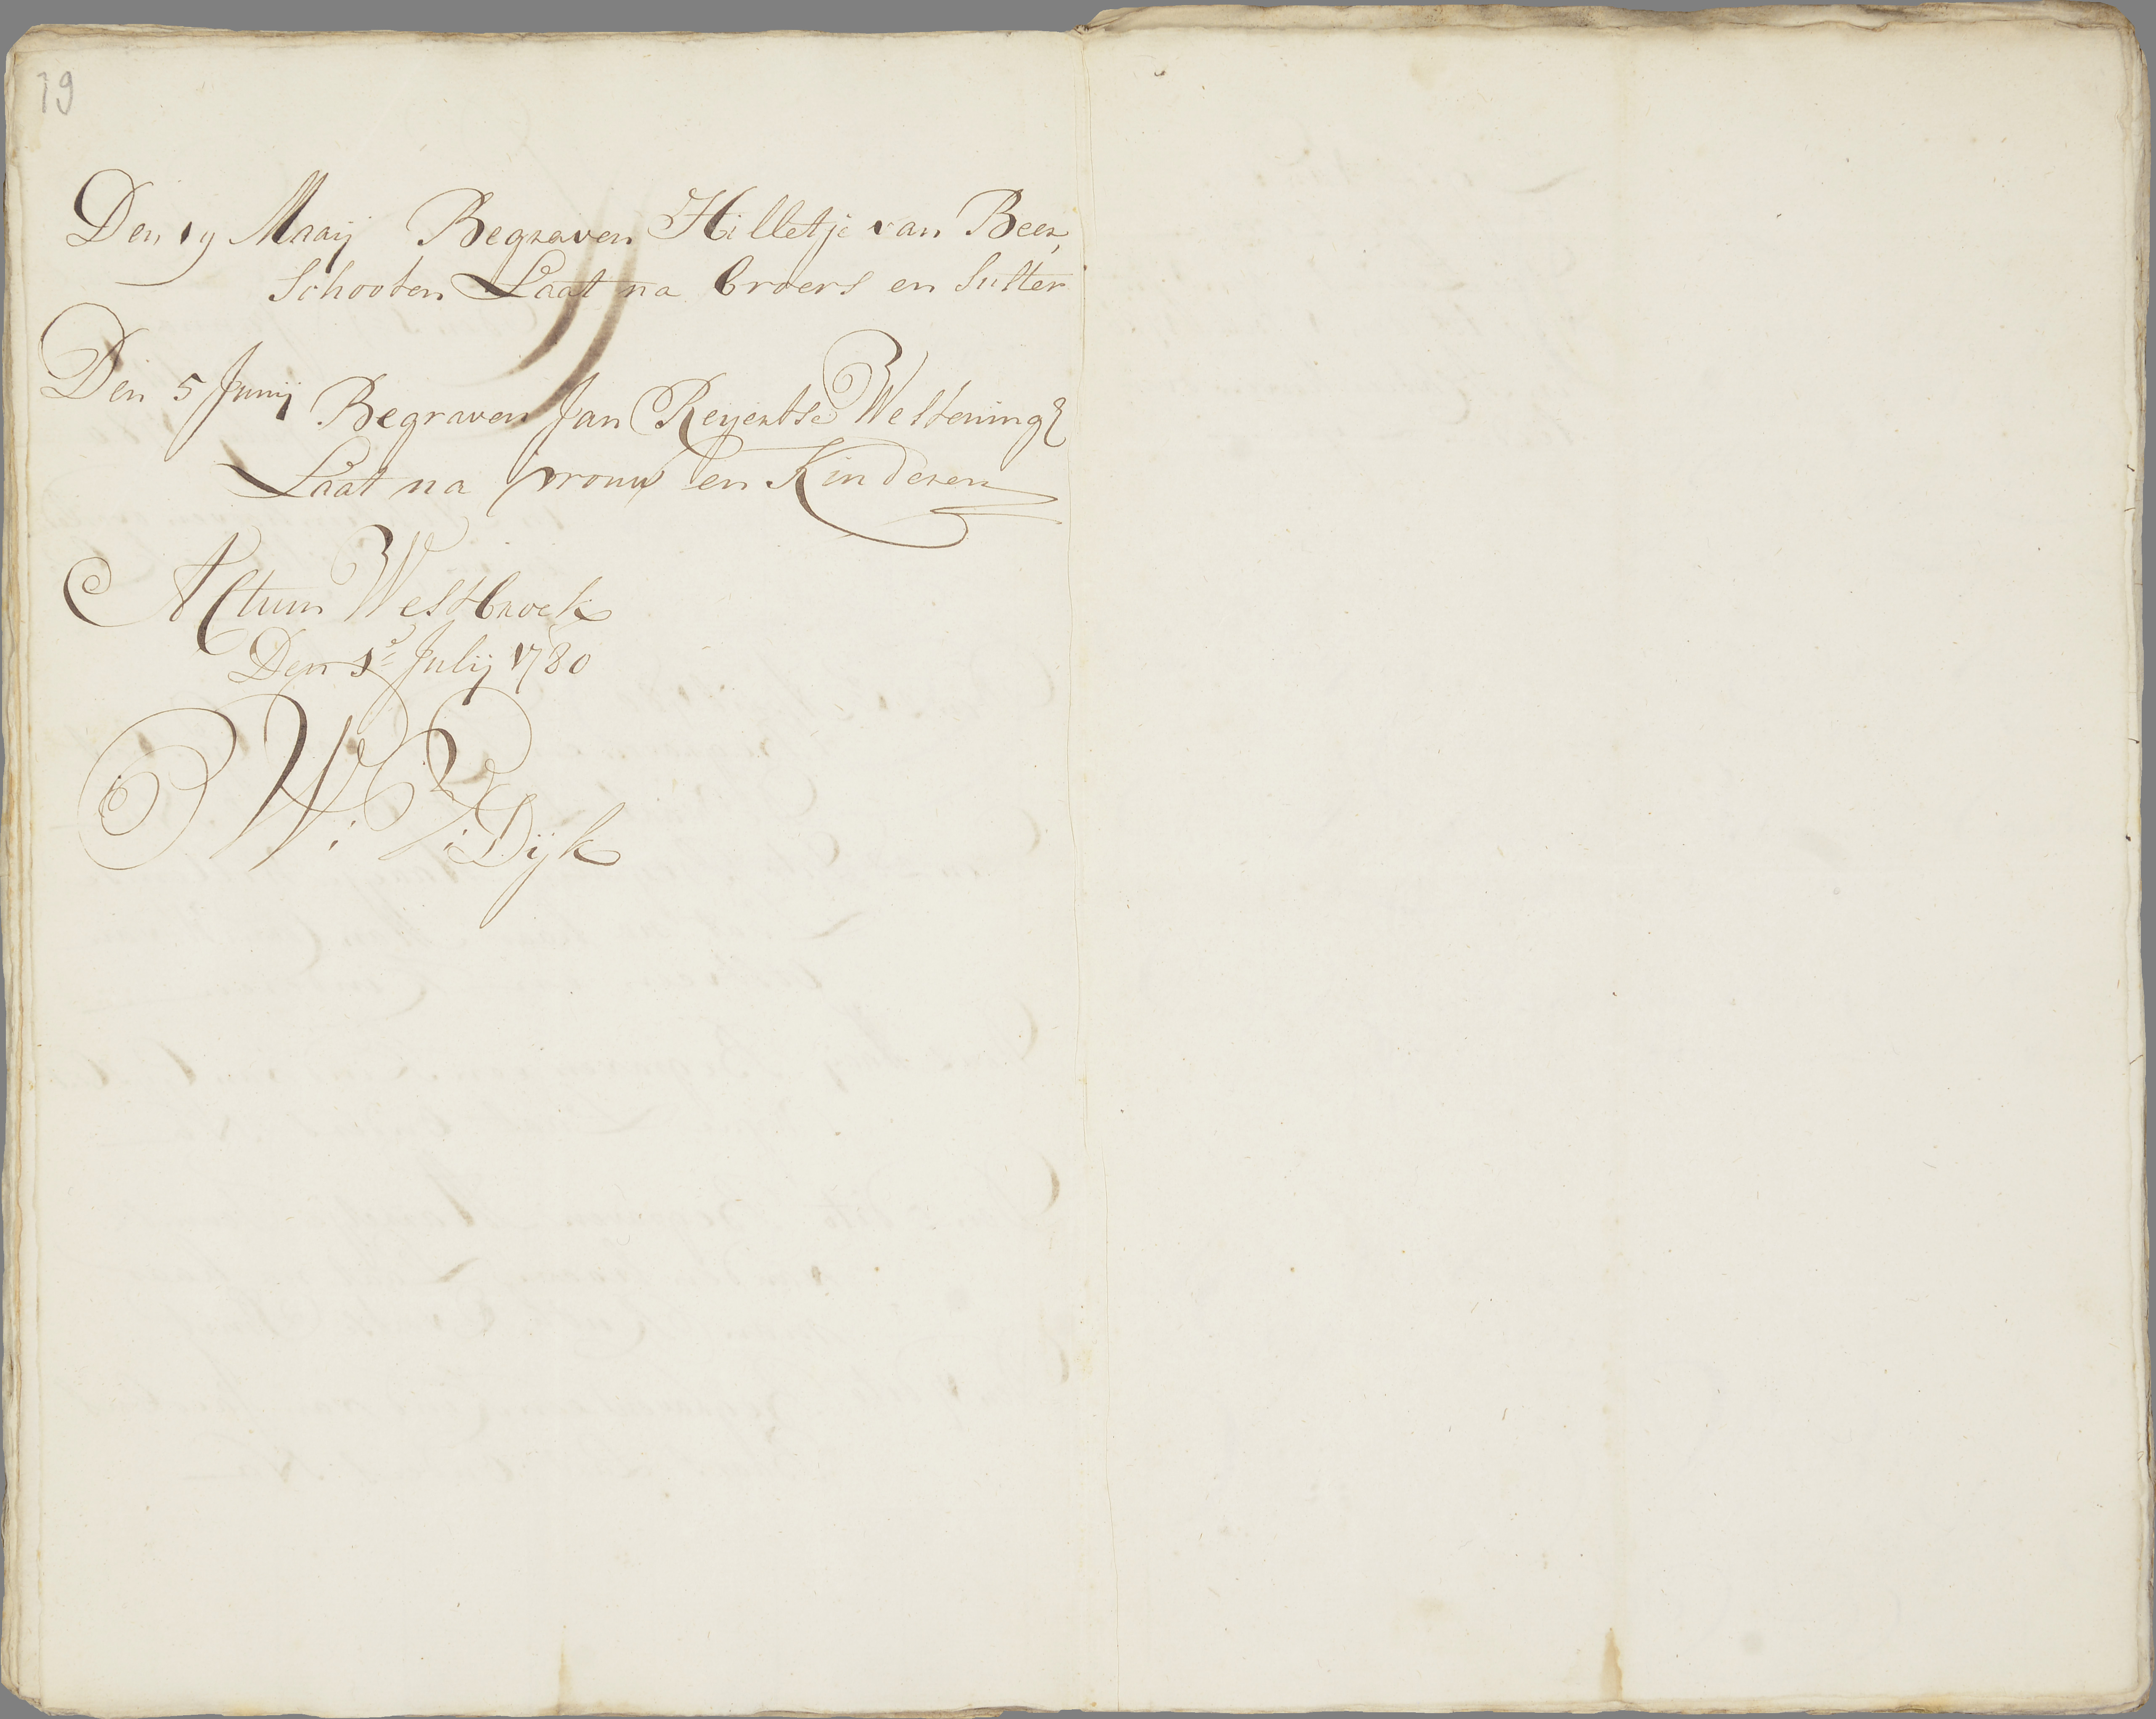 19
Den 19 Maaij Begraven Hilletje van Beer,
Schooten Laat na broers en Suster
Den 5 Junij Begraven Jan Reijertse Westeningh
Laat na vrouw en Kinderen
Actum Westbroek
Den 1e Julij 1780
W: V: Dijk